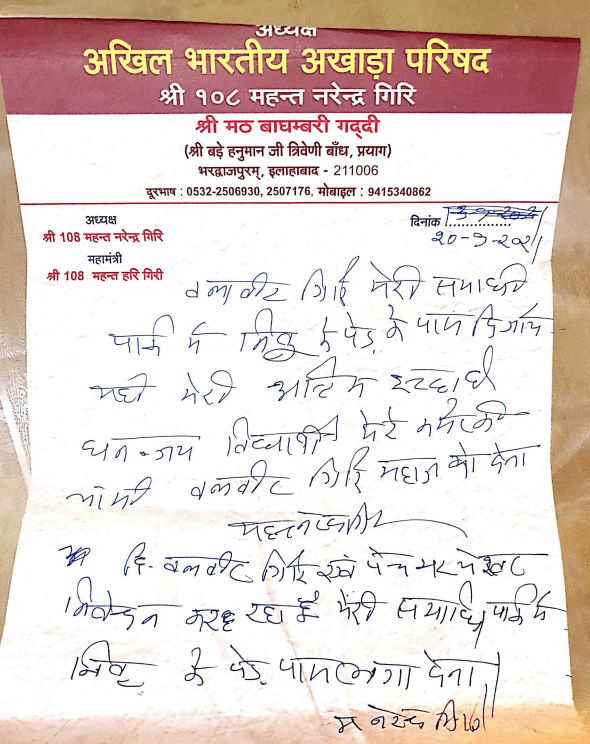 अध्यक्ष
अखिल भारतीय अखाड़ा परिषद
श्री १०८ महन्त नरेन्द्र गिरि
श्री मठ बाघम्बरी गद्दी
(श्री बड़े हनुमान जी त्रिवेणी बाँध, प्रयाग)
भरद्वाजपुरम्, इलाहाबाद - 211006
दूरभाष : 0532-2506930, 2507176, मोबाइल : 9415340862
अध्यक्ष
श्री 108 महन्त नरेन्द्र गिरि
महामंत्री
श्री 108 महन्त हरि गिरी
दिनांक
२०-९-२०२१
वलवीर गिरि मेरी समाधी
पार्क मे निबू के पेड़ के पास दि जाय
यही मेरी अंतिम इच्छा है
धनन्जय विद्यार्थी मेरे कमरे की
चाभी वलवीर गिरि महाज को देना
दि. वलवीर गिरि एवं पंच
निवेदन कर रहा है मेरी समाधि पार्क मे
निबू के पेड़ पास लगा देना
म नरेन्द्र गिरि